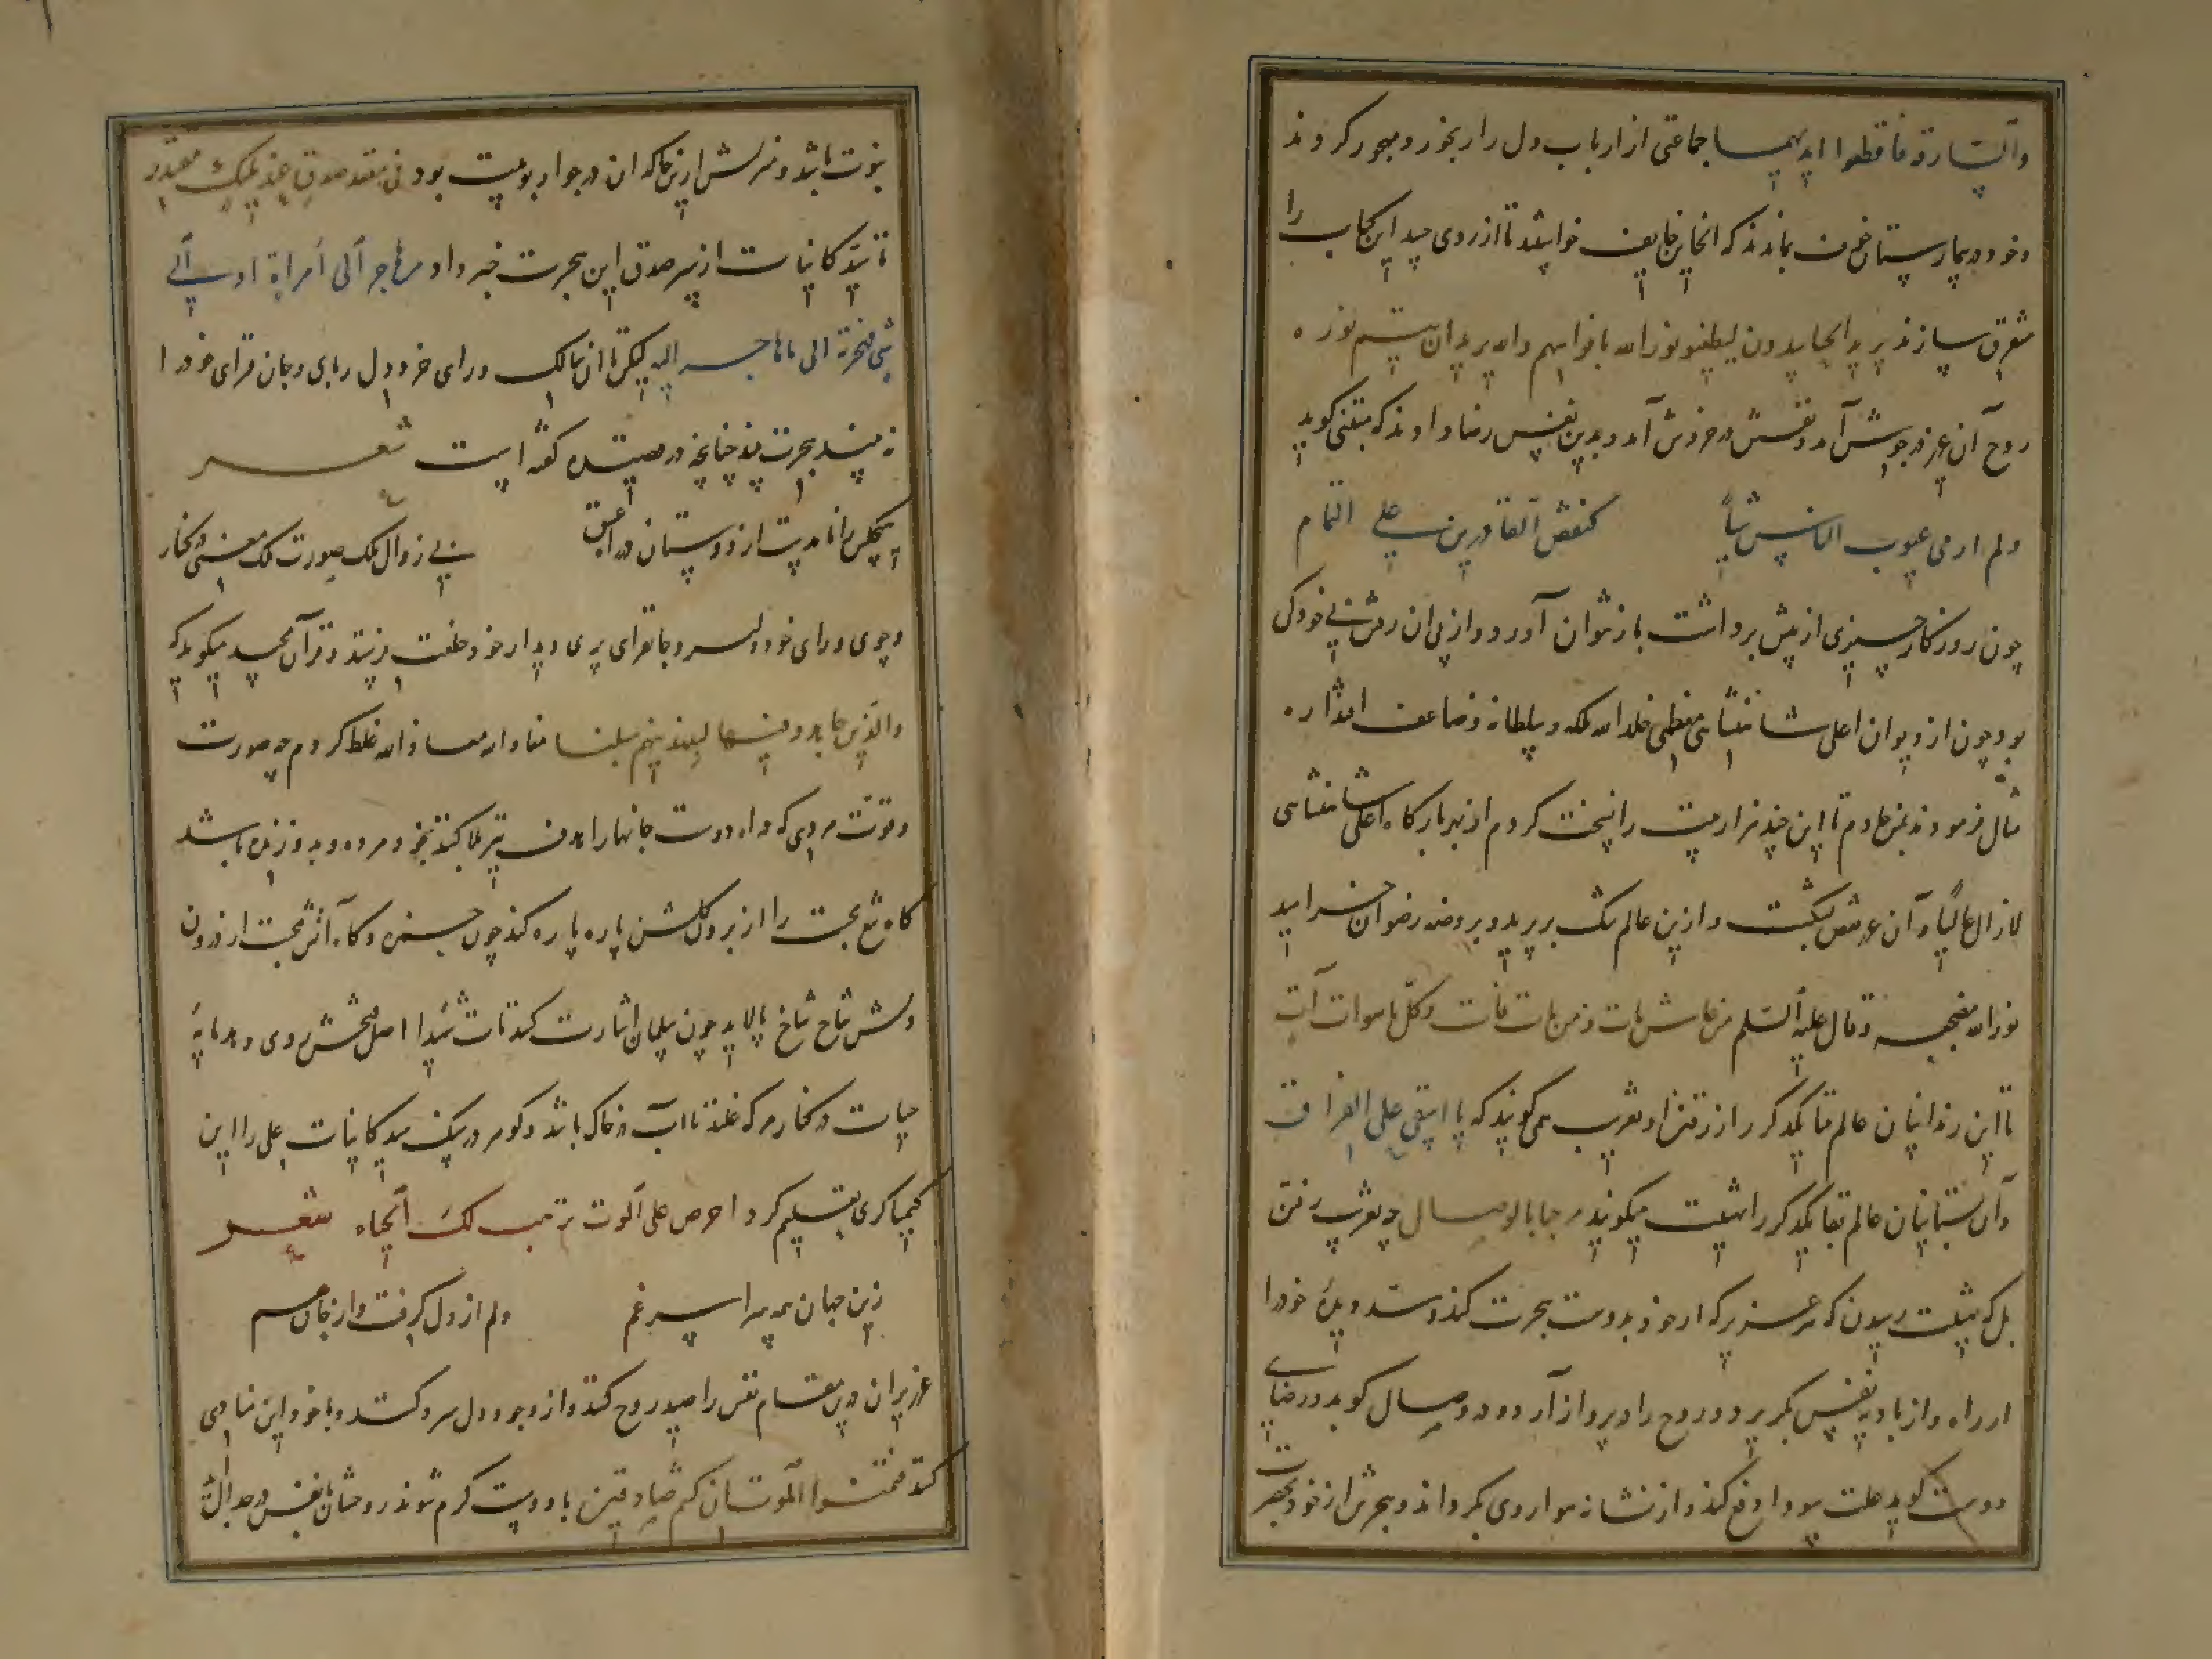 والسارقة فاقطعوا ایدیهما جماعتی از ارباب دل را رنجور و مهجور کردند
و خود در بیمارستان خوف بماندند که انجا بن خایف خوابیند تا از روی حسد این کتاب را
متفرق سازند یریدون لیطفئو نور الله بافواههم والله یریدان یتم نوره
روح آن عزیز در جوش آمد و نفسش در خروش آمد و بدین نفس رضا دادند که متنبی گوید
ولم ار فی عیوب الناس شیاً کنقص القادرین علی التمام
چون روزگار چیزی از پیش برداشت باز نتوان آورد و از پی آن رفتن بی خردکی
بود چون از دیوان اعلی شاهنشاهی معظمی خلد الله ملکه و سلطانه و ضاعف اقتداره
مثال فرمودند بمن خادم تا این چند هزار بیت را نسخت کردم از بهر بارگاه اعلی شاهنشاهی
لازال عالیا و آن عزیز قفص بشکست و از این عالم تنگ بر پرید و بروضه رضوان خرامید
نور الله مضجعه و قال علیه السلم من عاش مات و من مات فات و کل ما هو ات آت
تا این زندانیان عالم فنا یکدگر را از رفتن او بغرب می گویند که یا اسفی علی الفراق
و آن بستانیان عالم بقا یکدگر را بتهنیت میگویند مرحبا بالوصال چه بغرب رفتن
بل که بتهنیت رسیدن که هر عزیز که از خود بدوست هجرت کند و سد دیده خود را
از راه و از بادیه نفس بگریزد و روح را در پرواز آرد و در وصال کوبد و رضای
دوست کوید علت سودا دفع کند و از نشانه هوا روی بگرداند و هجرتش از خود بحضرت
نبوت باشد و منزلش از این خاکدان در جوار ربوبیت بود فی مقعد صدق عند ملیک مقتدر
تا سید کاینات از سر صدق این هجرت خبر داد و من هاجر الی امراة او الی
شی فهجرته الی ما هاجر الیه لیکن تا آن سالک ورای خرد و دل ربای و جان فزای خود را
نه بیند هجرت نکند چنانچه در قصیده گفته است شعر
هیچکس را نامدست از دوستان در راه عشق بی زوال ملک صورت ملک معنی در کنار
و چون ورای خود دلبر و جانفزای پری دیدار خود خلعت فرستد و قرآن مجید میگوید که
والذین جاهدوا فینا لنهدینهم سبلنا معاذ الله غلط کردم چه صورت
و قوت مردی که در راه دوست جانها را هدف تیر بلا کند بخود مرده و بدو زنده باشد
گاه تیغ محبت را از برو گلشن پاره پاره کند چون حمزه و گاه آتش محبت از درون
دلش شاخ شاخ بالاید چون سلمان اشارت کند تابت شیدا اصل صحبتش روی دهد مایه
حیات در کنار مرگ غلتد تا آب در خاک باشد و گوهر در سنگ سید کاینات علی را این
کیمیاگری تعلیم کرد احرص علی الموت توهب لک الحیاه شعر
زین جهان همه سراسر غم دلم از دل گرفت و از جان هم
عزیزان درین مقام نفس را صید روح کنند و از وجود دل سرد کنند و با خود این منادی
کنند فتمنوا الموت ان کنتم صادقین با دوست گرم شوند روحشان با نفس در جدال